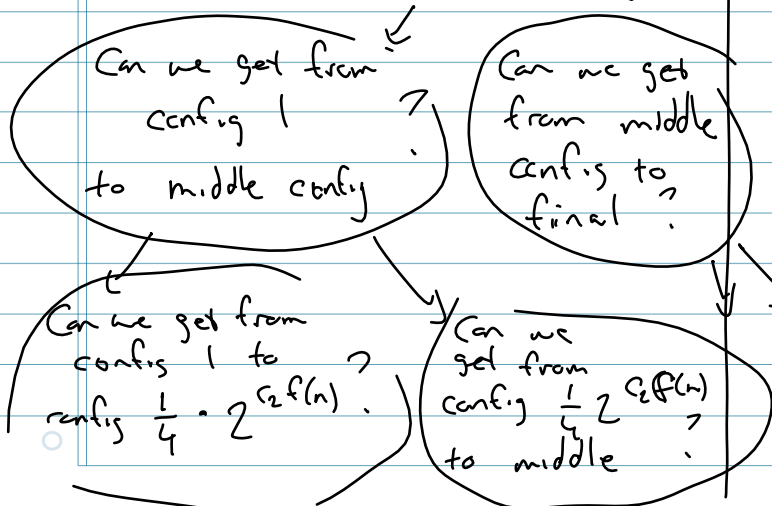 Can we get from
config 1
to middle config ?
Can we get
from middle
config to
final ?
Can we get from
config 1 to
config 1/4 · 2^{c_2 f(n)} ?
Can we
get from
config 1/4 2^{c_2 f(n)}
to middle ?